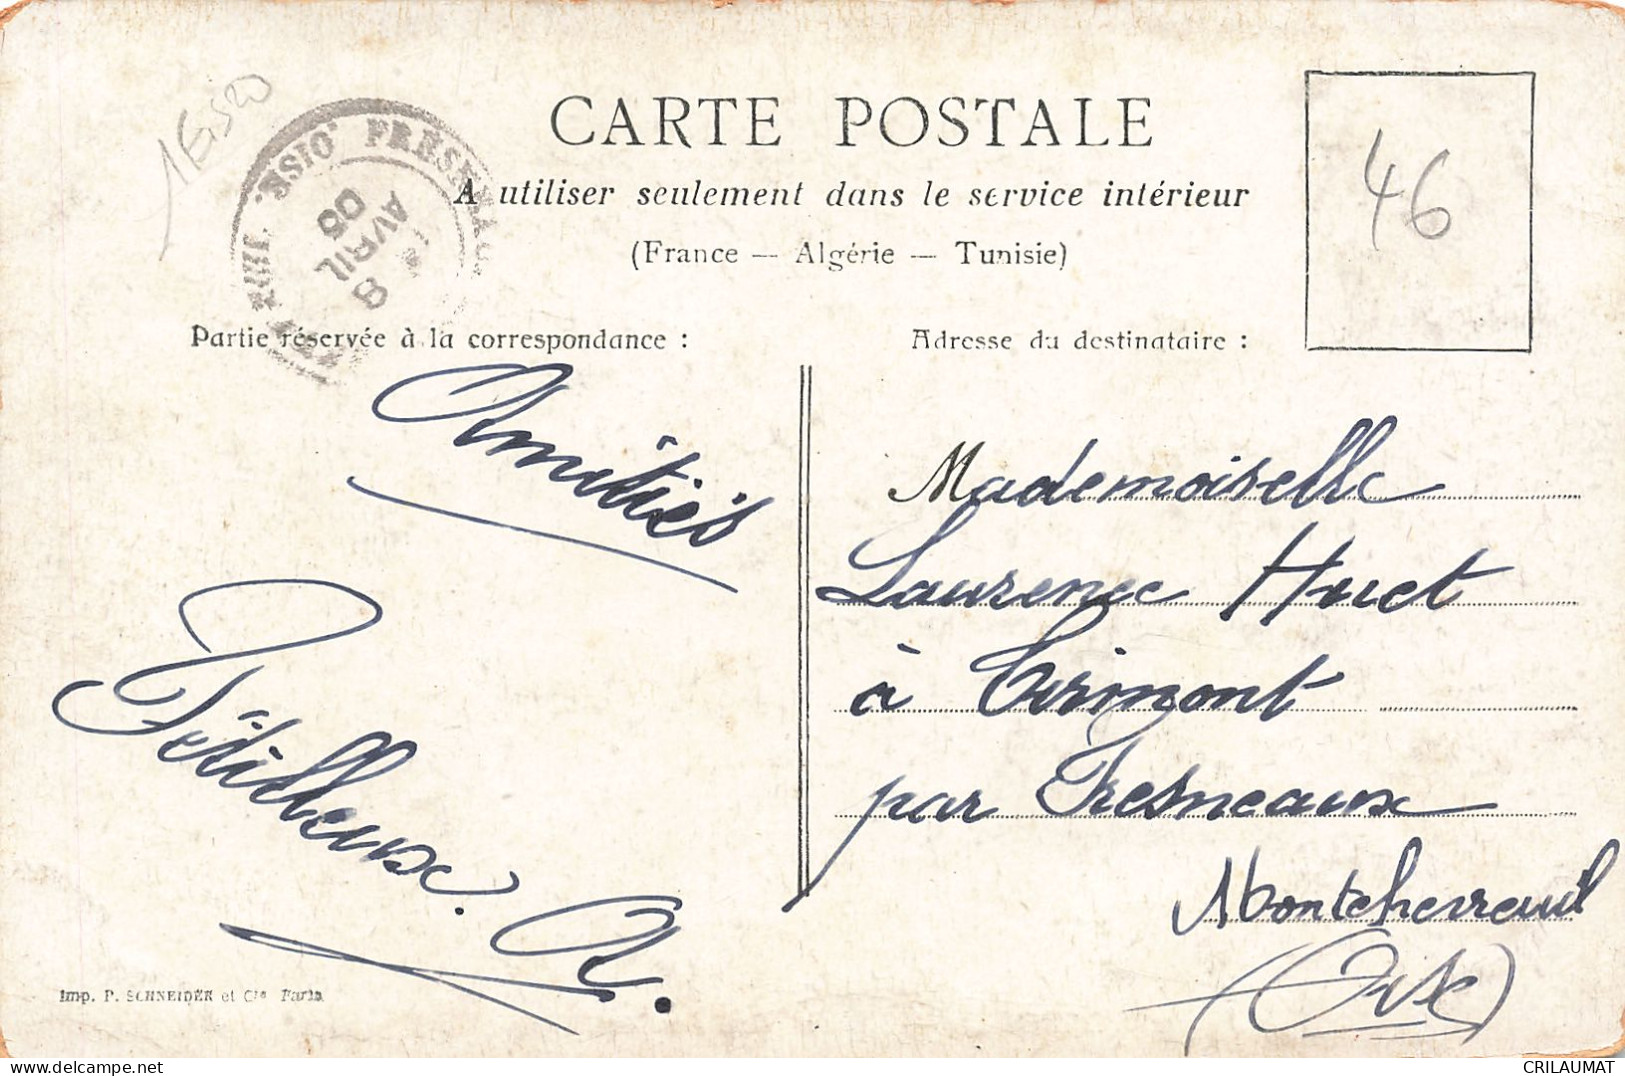 1E,520
CARTE POSTALE
A utiliser seulement dans le service intérieur
(France — Algérie — Tunisie)
46
8
AVRIL
05
Partie réservée à la correspondance :
Adresse du destinataire :
Amitiés
Mademoiselle
Laurence Huet
à Tirmont
par Fresneaux
Montchevreuil
(Oise)
Pétilleux. A.
Imp. P. SCHNEIDER et Cie Paris
CRILAUMAT